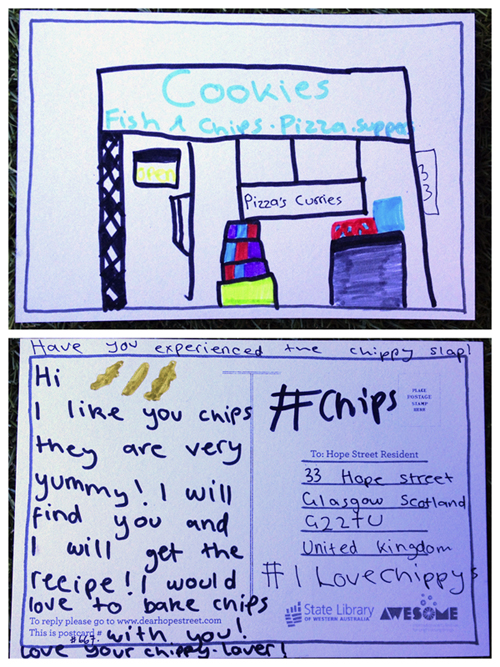 Cookies
Fish & Chips. Pizza. suppers
open
Pizza's Curries
33
Have you experienced the chippy slap!
Hi
I like you chips
they are very
yummy! I will
find you and
I will get the
recipe! I would
love to bake chips
with you!
love your chippy-lover!
To reply please go to www.dearhopestreet.com
This is postcard #
#chips
PLACE
POSTAGE
STAMP
HERE
To: Hope Street Resident
33 Hope street
Glasgow Scotland
G22TU
United kingdom
#I Love chippys
State Library
OF WESTERN AUSTRALIA
AWESOME